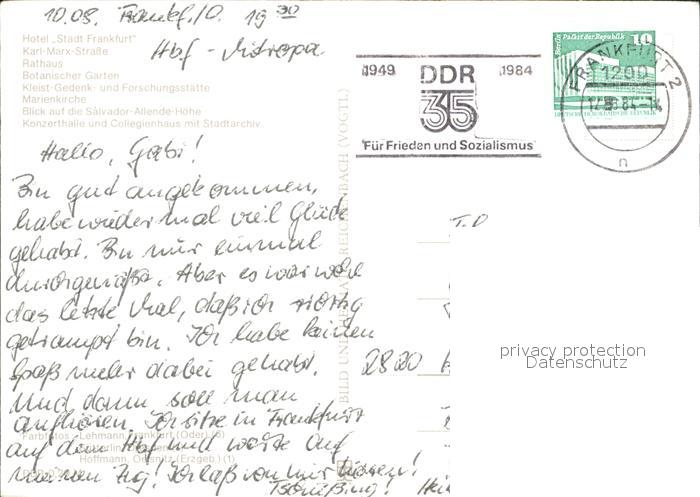 10.08. Frankf./O. 19 30
Hbf - Mitropa
Hotel „Stadt Frankfurt"
Karl-Marx-Straße
Rathaus
Botanischer Garten
Kleist-Gedenk- und Forschungsstätte
Marienkirche
Blick auf die Salvador-Allende-Höhe
Konzerthalle und Collegienhaus mit Stadtarchiv
1949 DDR 1984
35
Für Frieden und Sozialismus
Berlin Palast der Republik 10
FRANKFURT 2
1200
84
n
Hallo, Gabi!
Bin gut angekommen,
habe wieder mal viel Glück
gehabt. Bin nur einmal
durchgenäßt. Aber es war wohl
das letzte Mal, daß ich richtig
getrampt bin. Ich habe keinen
Spaß mehr dabei gehabt.
Und dann soll man
aufhören. Ich sitze in Frankfurt
auf dem Hbf und warte auf
meinen Zug! Ich laß von mir hören!
Tschüßing!
T. D
2820
BILD UND HEIMAT REICHENBACH (VOGTL)
Farbfotos: Lehmann, Frankfurt (Oder) (6)
Hoffmann, Oelsnitz (Erzgeb.) (1)
privacy protection
Datenschutz